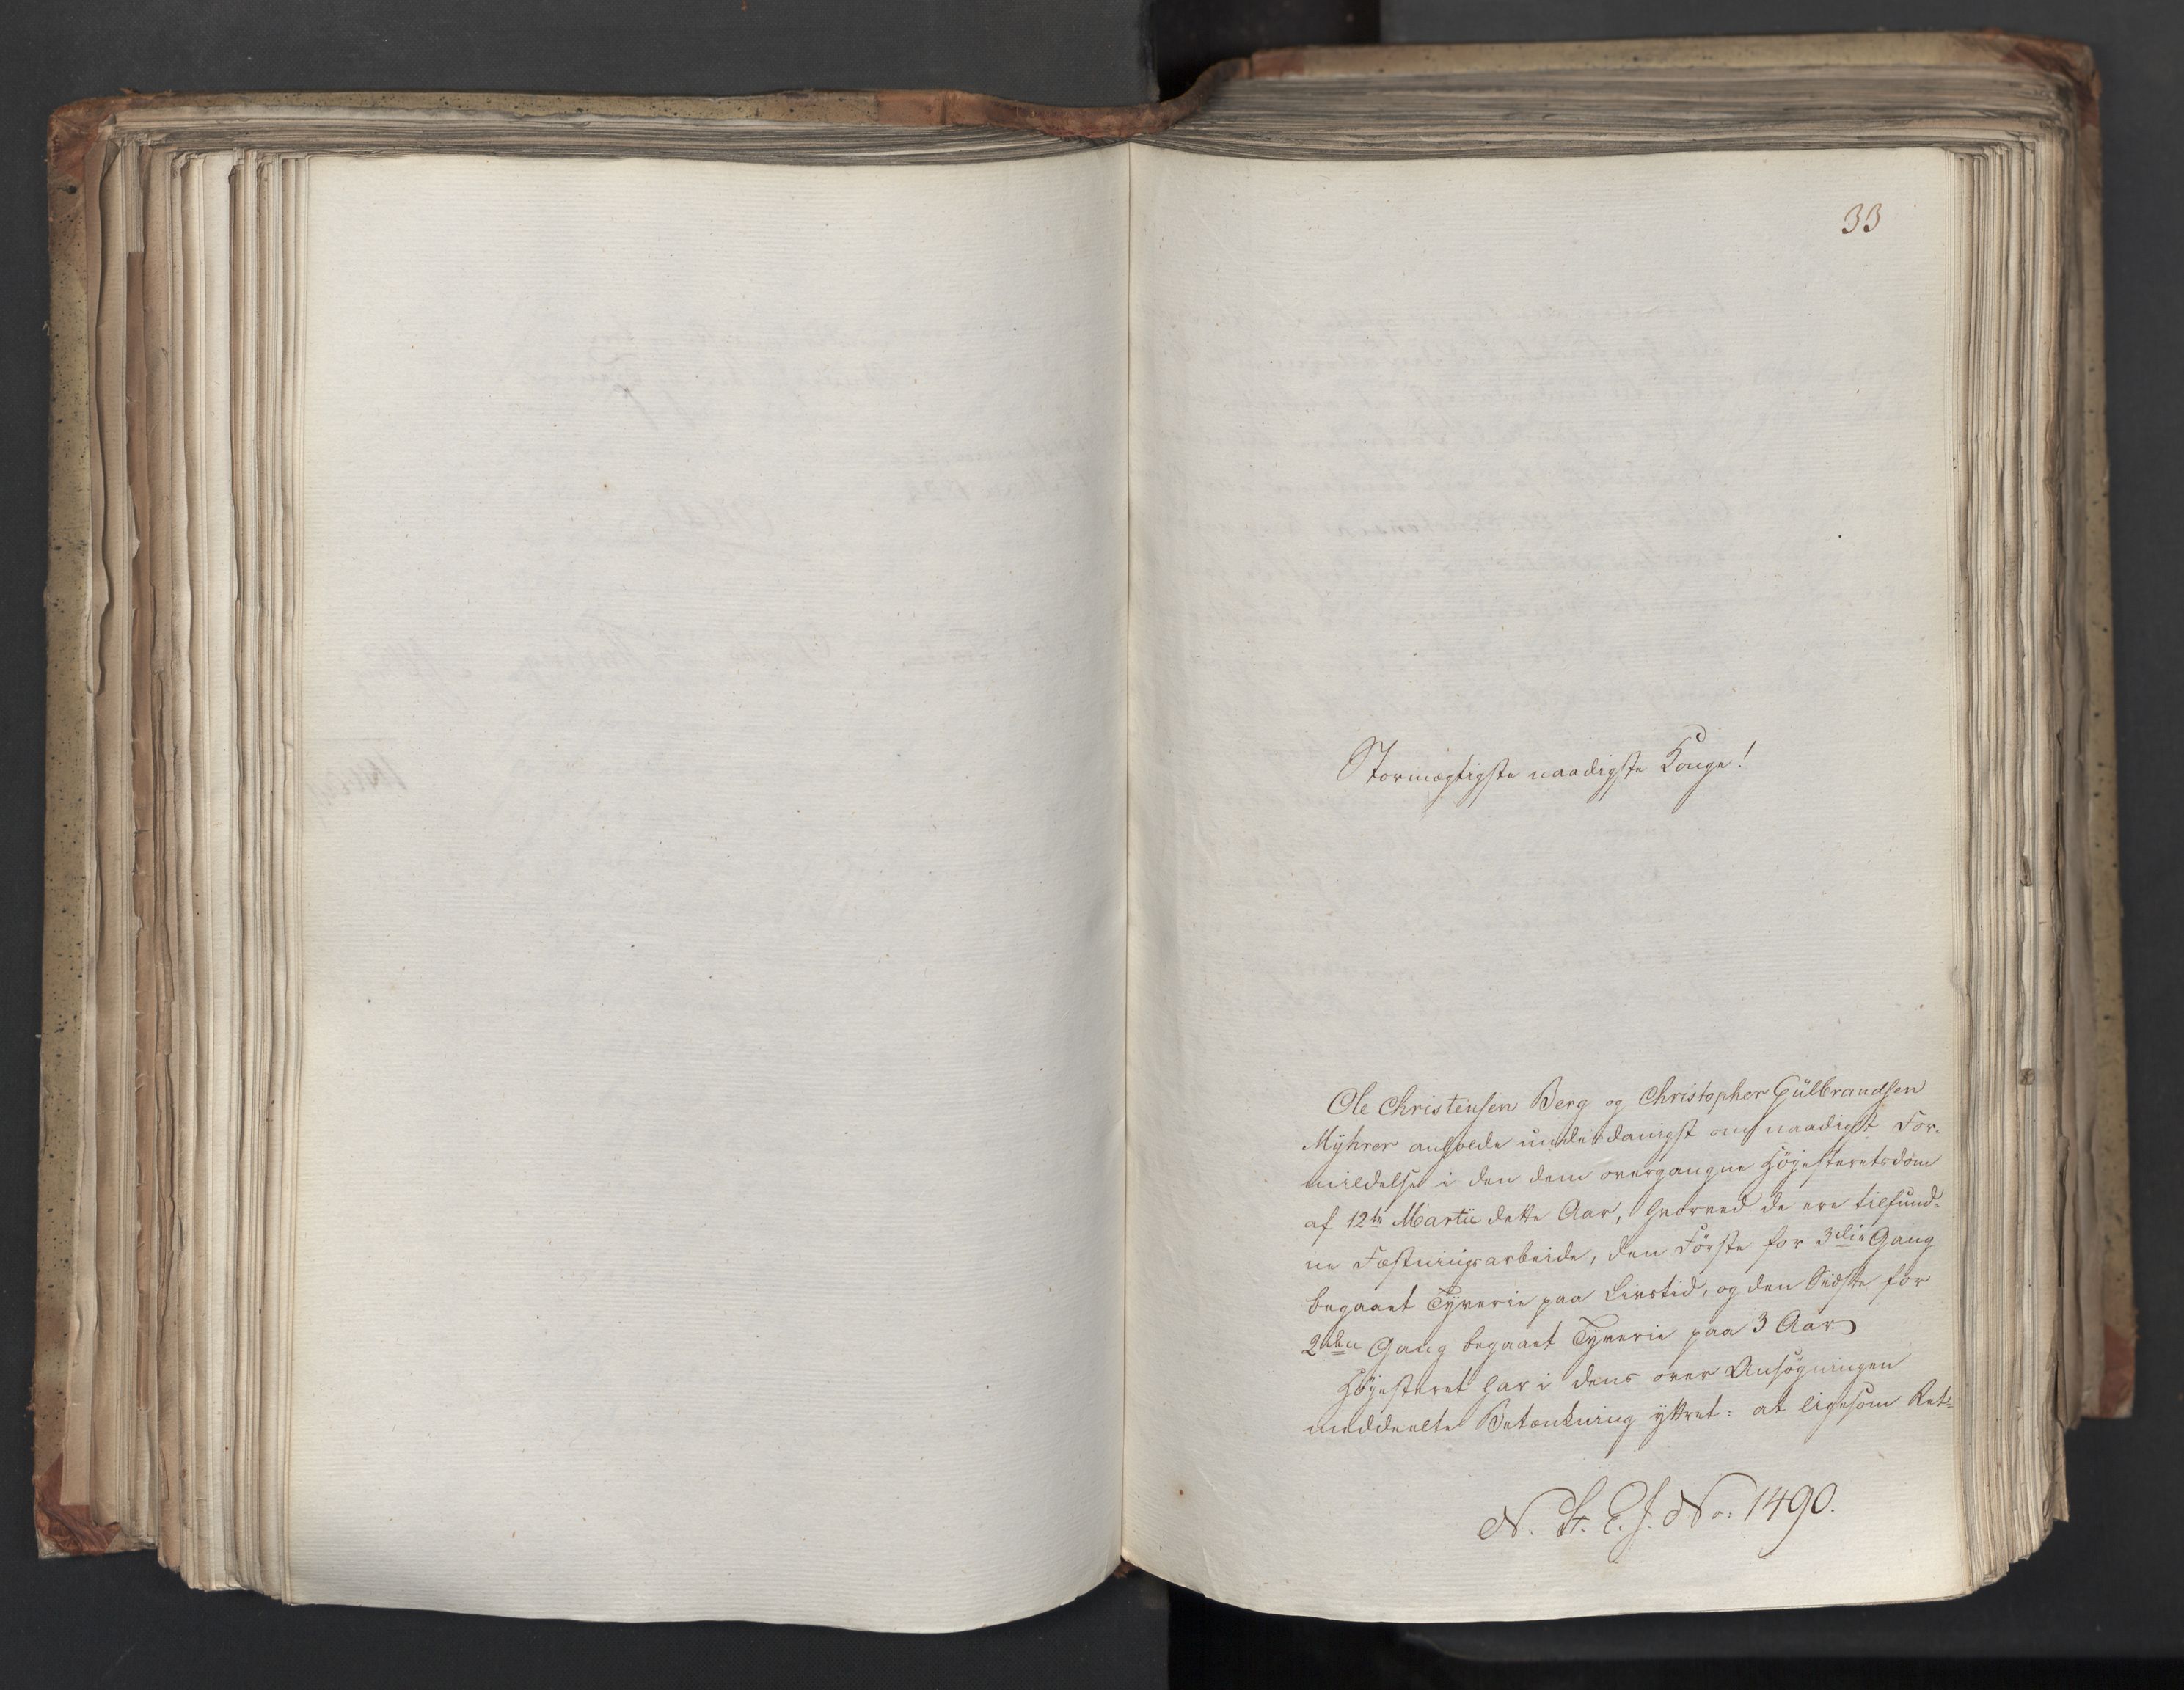 33
Stormægtigste naadigste Konge!
Ole Christensen Berg og Christopher Gülbrandsen
Mÿhrer ansøede underdanigst om naadigst For-
mildelse i den dem overgangne Höjesteretsdom
af 12te Martii dette Aar, hvorved de ere tilfund-
ne Fæstningsarbeide, den Förste for 3die Gang
begaaet Tyverie paa Livstid, og den Sidste for
2den Gang begaaet Tyverie paa 3 Aar.
Höjesteret har i dens over Ansøgningen
meddeelte Betænkning yttret: at ligesom Ret-
N. St. E. J. No: 1490.